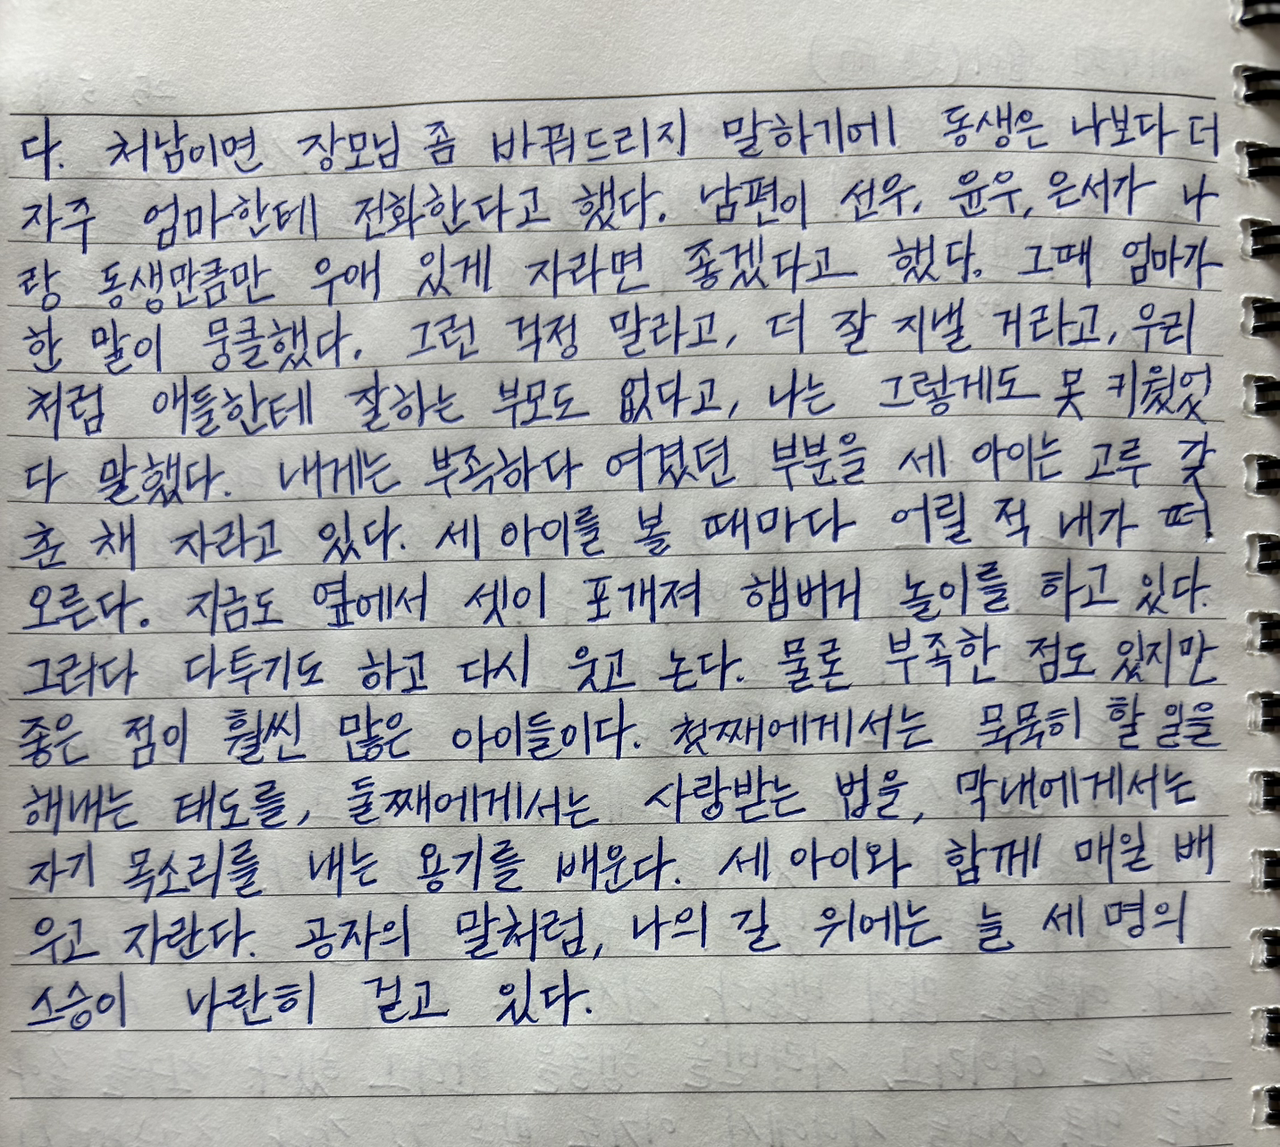 다. 처남이면 장모님 좀 바꿔드리지 말하기에 동생은 나보다 더
자주 엄마한테 전화한다고 했다. 남편이 선우, 윤우, 은서가 나
랑 동생만큼만 우애 있게 자라면 좋겠다고 했다. 그때 엄마가
한 말이 뭉클했다. 그런 걱정 말라고, 더 잘 지낼 거라고, 우리
처럼 애들한테 잘하는 부모도 없다고, 나는 그렇게도 못 키웠었
다 말했다. 내게는 부족하다 여겼던 부분을 세 아이는 고루 갖
춘 채 자라고 있다. 세 아이를 볼 때마다 어릴 적 내가 떠
오른다. 지금도 옆에서 셋이 포개져 햄버거 놀이를 하고 있다.
그러다 다투기도 하고 다시 웃고 논다. 물론 부족한 점도 있지만
좋은 점이 훨씬 많은 아이들이다. 첫째에게서는 묵묵히 할 일을
해내는 태도를, 둘째에게서는 사랑받는 법을, 막내에게서는
자기 목소리를 내는 용기를 배운다. 세 아이와 함께 매일 배
우고 자란다. 공자의 말처럼, 나의 길 위에는 늘 세 명의
스승이 나란히 걷고 있다.